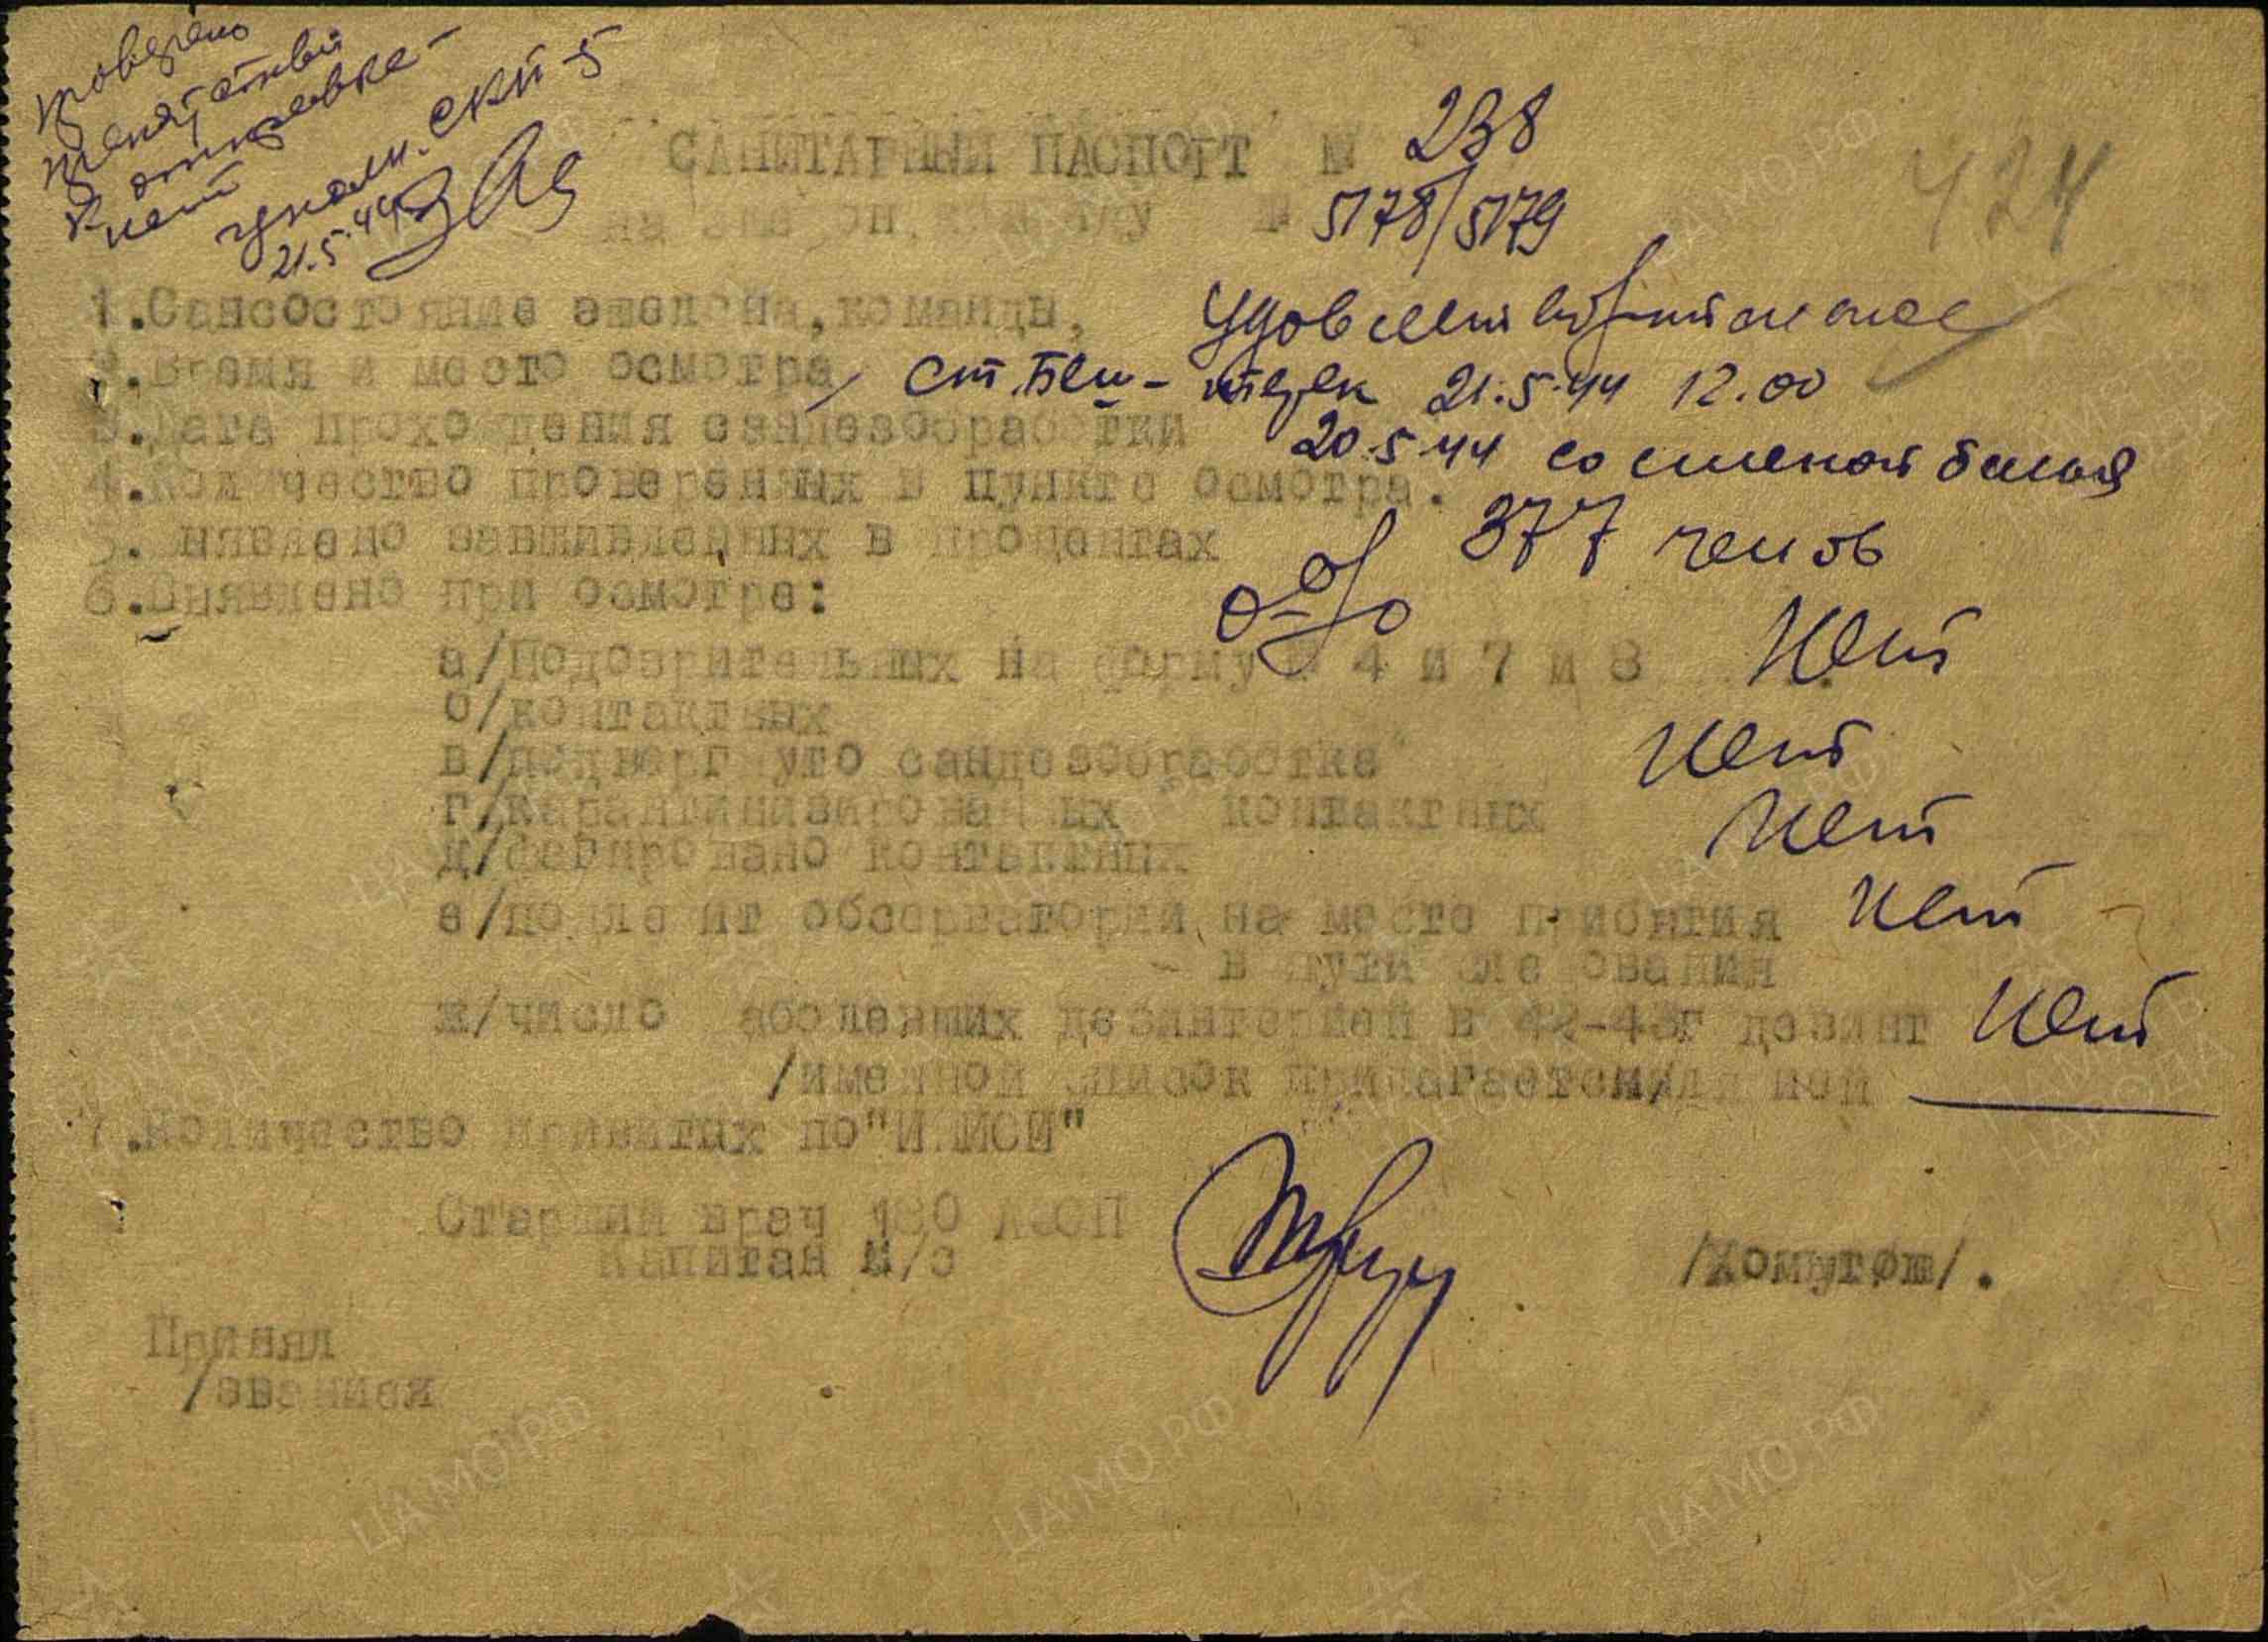 проверено
препятствий
к отправке
нет
21.5.44
САНИТАРНЫЙ ПАСПОРТ № 238
на эшелон, команду № 5178/5179
424
1.Сансостояние эшелона,команды, удовлетворительное
2.Время и место осмотра ст.Беш-терек 21.5.44 12.00
3.Дата прохождения сандезобработки 20.5.44 со сменой белья
4.Количество проверенных в пункте осмотра. 377 человек
5.Выявлено завшивленных в процентах 0-%
6.Выявлено при осмотре:
а/Подозрительных на форму № 4 и 7 и 8 Нет
б/контактных
в/подвергнуто сандезобработке Нет
г/карантинизированных контактных Нет
д/ контактных
е/подлежит обсерватории на месте прибытия Нет
- в пути следования
ж/число заболевших дезинтерией в 42-43г дезинт Нет
/именной список прилагается/ ией
7.Количество привитых по"И.ИСИ"
Старший врач 180 АЗСП
Капитан м/с /Хомутош/.
Принял
/звание